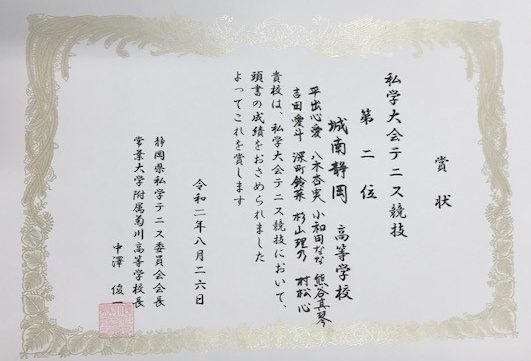 賞状
私学大会テニス競技
第二位
城南静岡 高等学校
平出心愛 八木杏実 小和田なな 熊谷真琴
吉田愛斗 深町鈴菜 杉山理乃 村松心
貴校は、私学大会テニス競技において、
頭書の成績をおさめられました
よってこれを賞します
令和二年八月二六日
静岡県私学テニス委員会会長
常葉大学附属菊川高等学校長
中澤 俊